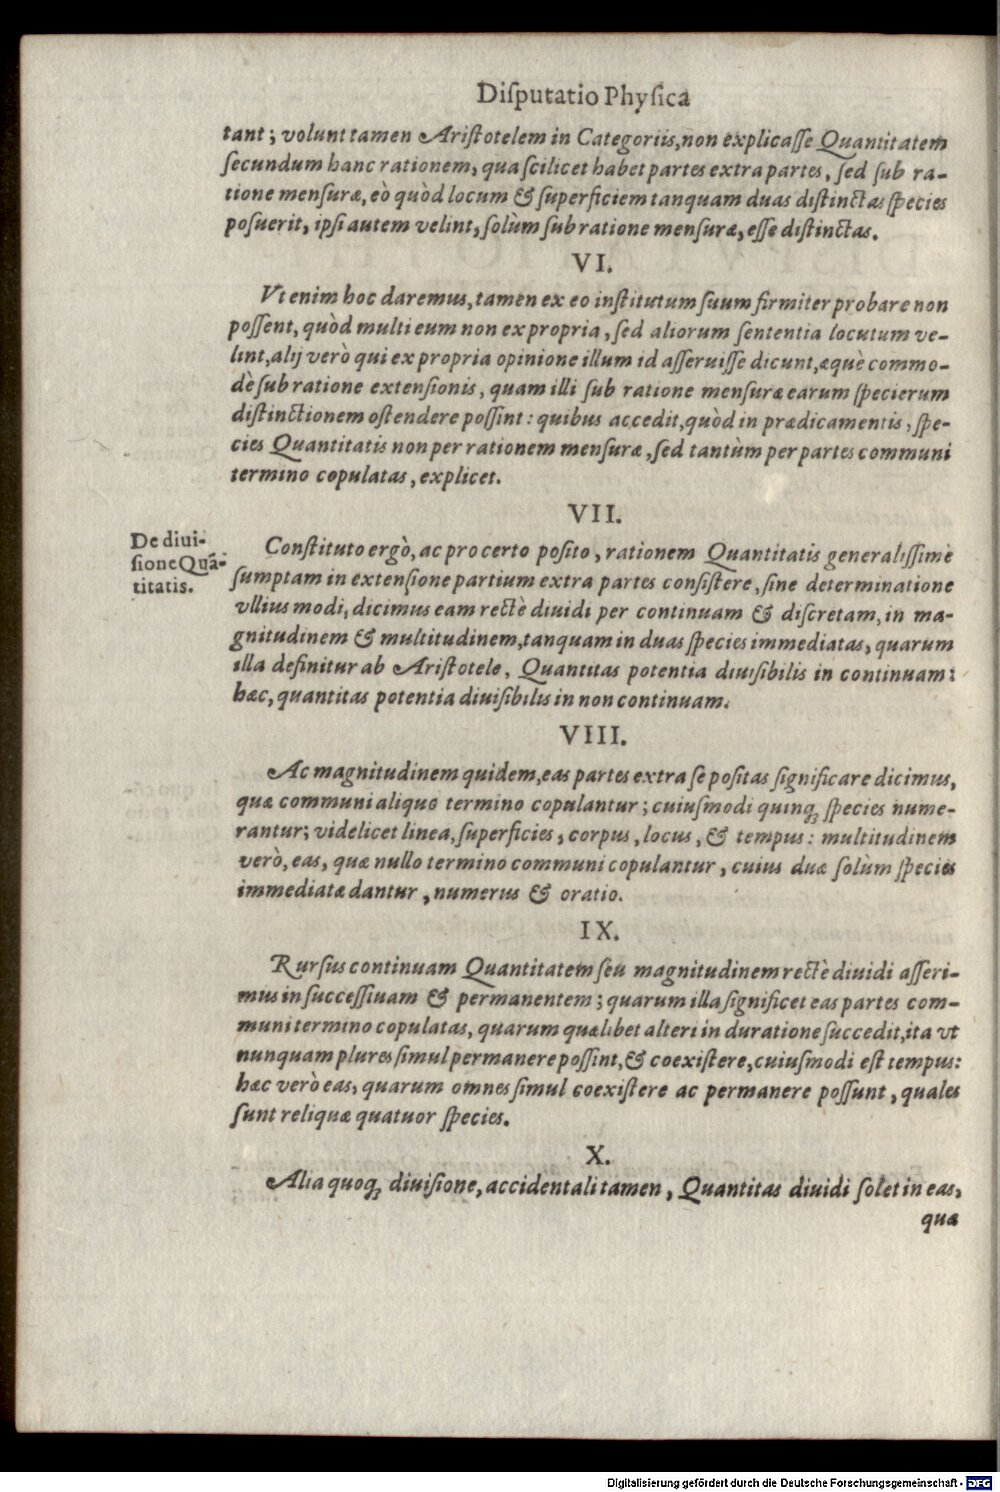 Diſputatio Phyſica
tant; volunt tamen Ariſtotelem in Categoriis, non explicaſſe Quantitatem
ſecundum hanc rationem, qua ſcilicet habet partes extra partes, ſed ſub ra-
tione menſuræ, eò quòd locum & ſuperficiem tanquam duas diſtinctas ſpecies
poſuerit, ipſi autem velint, ſolùm ſub ratione menſuræ, eſſe diſtinctas.
VI.
Vt enim hoc daremus, tamen ex eo inſtitutum ſuum firmiter probare non
poſſent, quòd multi eum non ex propria, ſed aliorum ſententia locutum ve-
lint, alij verò qui ex propria opinione illum id aſſeruiſſe dicunt, æquè commo-
dè ſub ratione extenſionis, quam illi ſub ratione menſuræ earum ſpecierum
diſtinctionem oſtendere poſſint: quibus accedit, quòd in prædicamentis, ſpe-
cies Quantitatis non per rationem menſuræ, ſed tantùm per partes communi
termino copulatas, explicet.
VII.
De diui-
ſione Quã-
titatis.
Conſtituto ergò, ac pro certo poſito, rationem Quantitatis generaliſſimè
ſumptam in extenſione partium extra partes conſiſtere, ſine determinatione
vllius modi, dicimus eam rectè diuidi per continuam & diſcretam, in ma-
gnitudinem & multitudinem, tanquam in duas ſpecies immediatas, quarum
illa definitur ab Ariſtotele, Quantitas potentia diuiſibilis in continuam:
hæc, quantitas potentia diuiſibilis in non continuam.
VIII.
Ac magnitudinem quidem, eas partes extra ſe poſitas ſignificare dicimus,
quæ communi aliquo termino copulantur; cuiuſmodi quinq; ſpecies nume-
rantur; videlicet linea, ſuperficies, corpus, locus, & tempus: multitudinem
verò, eas, quæ nullo termino communi copulantur, cuius duæ ſolùm ſpecies
immediatæ dantur, numerus & oratio.
IX.
Rurſus continuam Quantitatem ſeu magnitudinem rectè diuidi aſſeri-
mus in ſucceſſiuam & permanentem; quarum illa ſignificet eas partes com-
muni termino copulatas, quarum quælibet alteri in duratione ſuccedit, ita vt
nunquam plures ſimul permanere poſſint, & coexiſtere, cuiuſmodi eſt tempus:
hæc verò eas, quarum omnes ſimul coexiſtere ac permanere poſſunt, quales
ſunt reliquæ quatuor ſpecies.
X.
Alia quoq; diuiſione, accidentali tamen, Quantitas diuidi ſolet in eas,
quæ
Digitalisierung gefördert durch die Deutsche Forschungsgemeinschaft - DFG